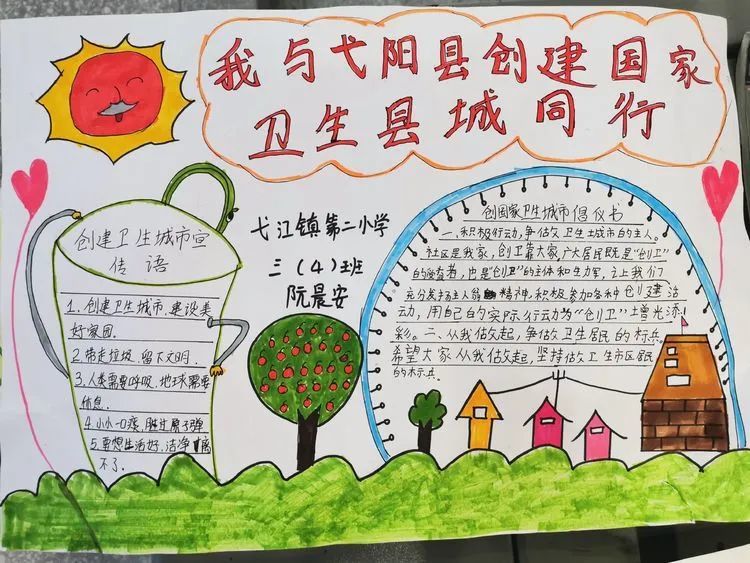 我与弋阳县创建国家
卫生县城同行
弋江镇第二小学
三(4)班
阮晨安
创建卫生城市宣
传语
1.创建卫生城市,建设美
好家园.
2.带走垃圾,留下文明.
3.人类需要呼吸,地球需要
休息.
4.小小一口痰,胜过原子弹
5.要想生活好,洁净离
不了.
创国家卫生城市倡仪书
一、积极行动,争做卫生城市的主人。
社区是我家,创卫靠大家,广大居民既是“创卫”
的受益者,也是“创卫”的主体和生力军,让我们
充分发扬主人翁精神,积极参加各种创建活
动,用自己的实际行动为“创卫”增光添
彩。二、从我做起,争做卫生居民的标兵。
希望大家从我做起,坚持做卫生市区居民
的标兵。